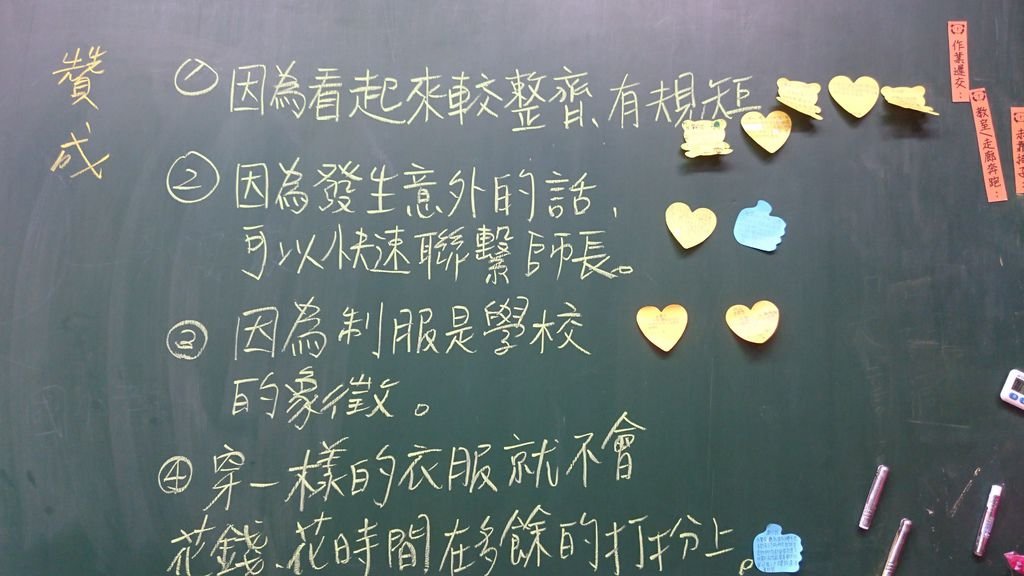 贊成
① 因為看起來較整齊、有規矩
② 因為發生意外的話,
可以快速聯繫師長。
③ 因為制服是學校
的象徵。
④ 穿一樣的衣服就不會
花錢、花時間在多餘的打扮上。
作業遲交:
教室/走廊奔跑: